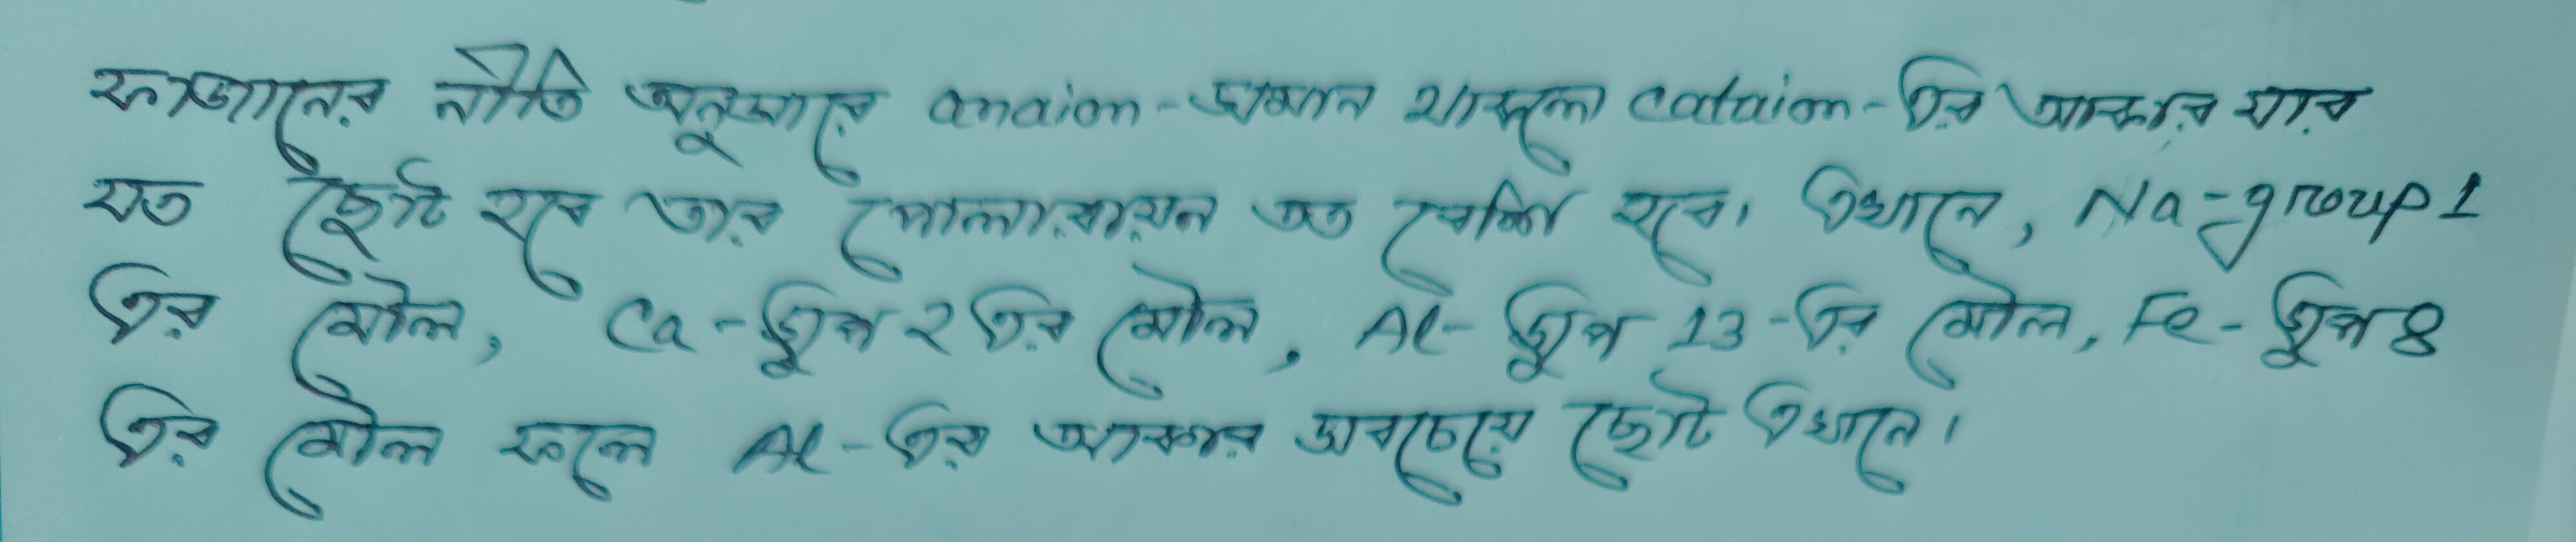 ফাজানের নীতি অনুসারে anaion-সমান থাকলে cataion-এর আকার যার
যত ছোট হবে তার পোলারায়ন তত বেশি হবে। এখানে, Na=group 1
এর মৌল, Ca-গ্রুপ ২ এর মৌল, Al- গ্রুপ 13-এর মৌল, Fe-গ্রুপ 8
এর মৌল ফলে Al-এর আকার সবচেয়ে ছোট এখানে।